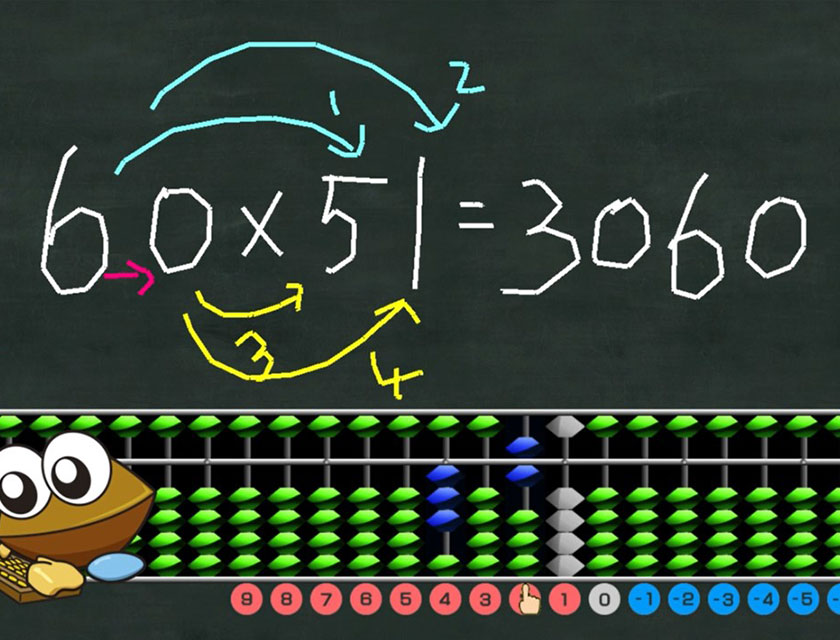 1 2
60 × 51 = 3060
3 4
9 8 7 6 5 4 3 1 0 -1 -2 -3 -4 -5